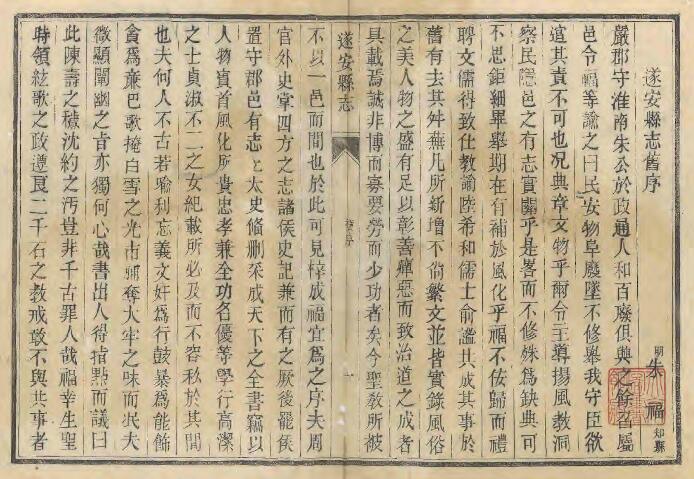 遂安縣志舊序
明朱福知縣
嚴郡守淮南朱公於政通人和百廢俱興之餘召屬
邑令福等諭之曰民安物阜廢墜不修舉我守臣欲
逭其責不可也况典章文物乎爾令主導揚風教洞
察民隱邑之有志實關乎是畧而不修殊為缺典可
不思鉅細畢舉期在有補於風化乎福不佞歸而禮
聘文儒得致仕教諭陸希和儒士俞謐共成其事於
舊有去其舛蕪凡所新增不尚繁文並皆實錄風俗
之美人物之盛有足以彰善癉惡而致治道之成者
具載焉誠非博而寡要勞而少功者矣今聖教所被
遂安縣志
舊序
一
不以一邑而間也於此可見梓成福宜為之序夫周
官外史掌四方之志諸侯史記兼而有之厥後罷侯
置守郡邑有志上太史脩刪采成天下之全書竊以
人物實首風化所貴忠孝兼全功名優等學行高潔
之士貞淑不二之女紀載所必及而不容私於其間
也夫何人不古若喻利忘義文奸為行鼓暴為能飾
貪為廉巴歌掩白雪之光市脯奪大牢之味而泯夫
微顯闡幽之旨亦獨何心哉書出人得指點而議曰
此陳壽之穢沈約之汚豈非千古罪人哉福幸生聖
時領絃歌之政遵良二千石之教戒敢不與共事者